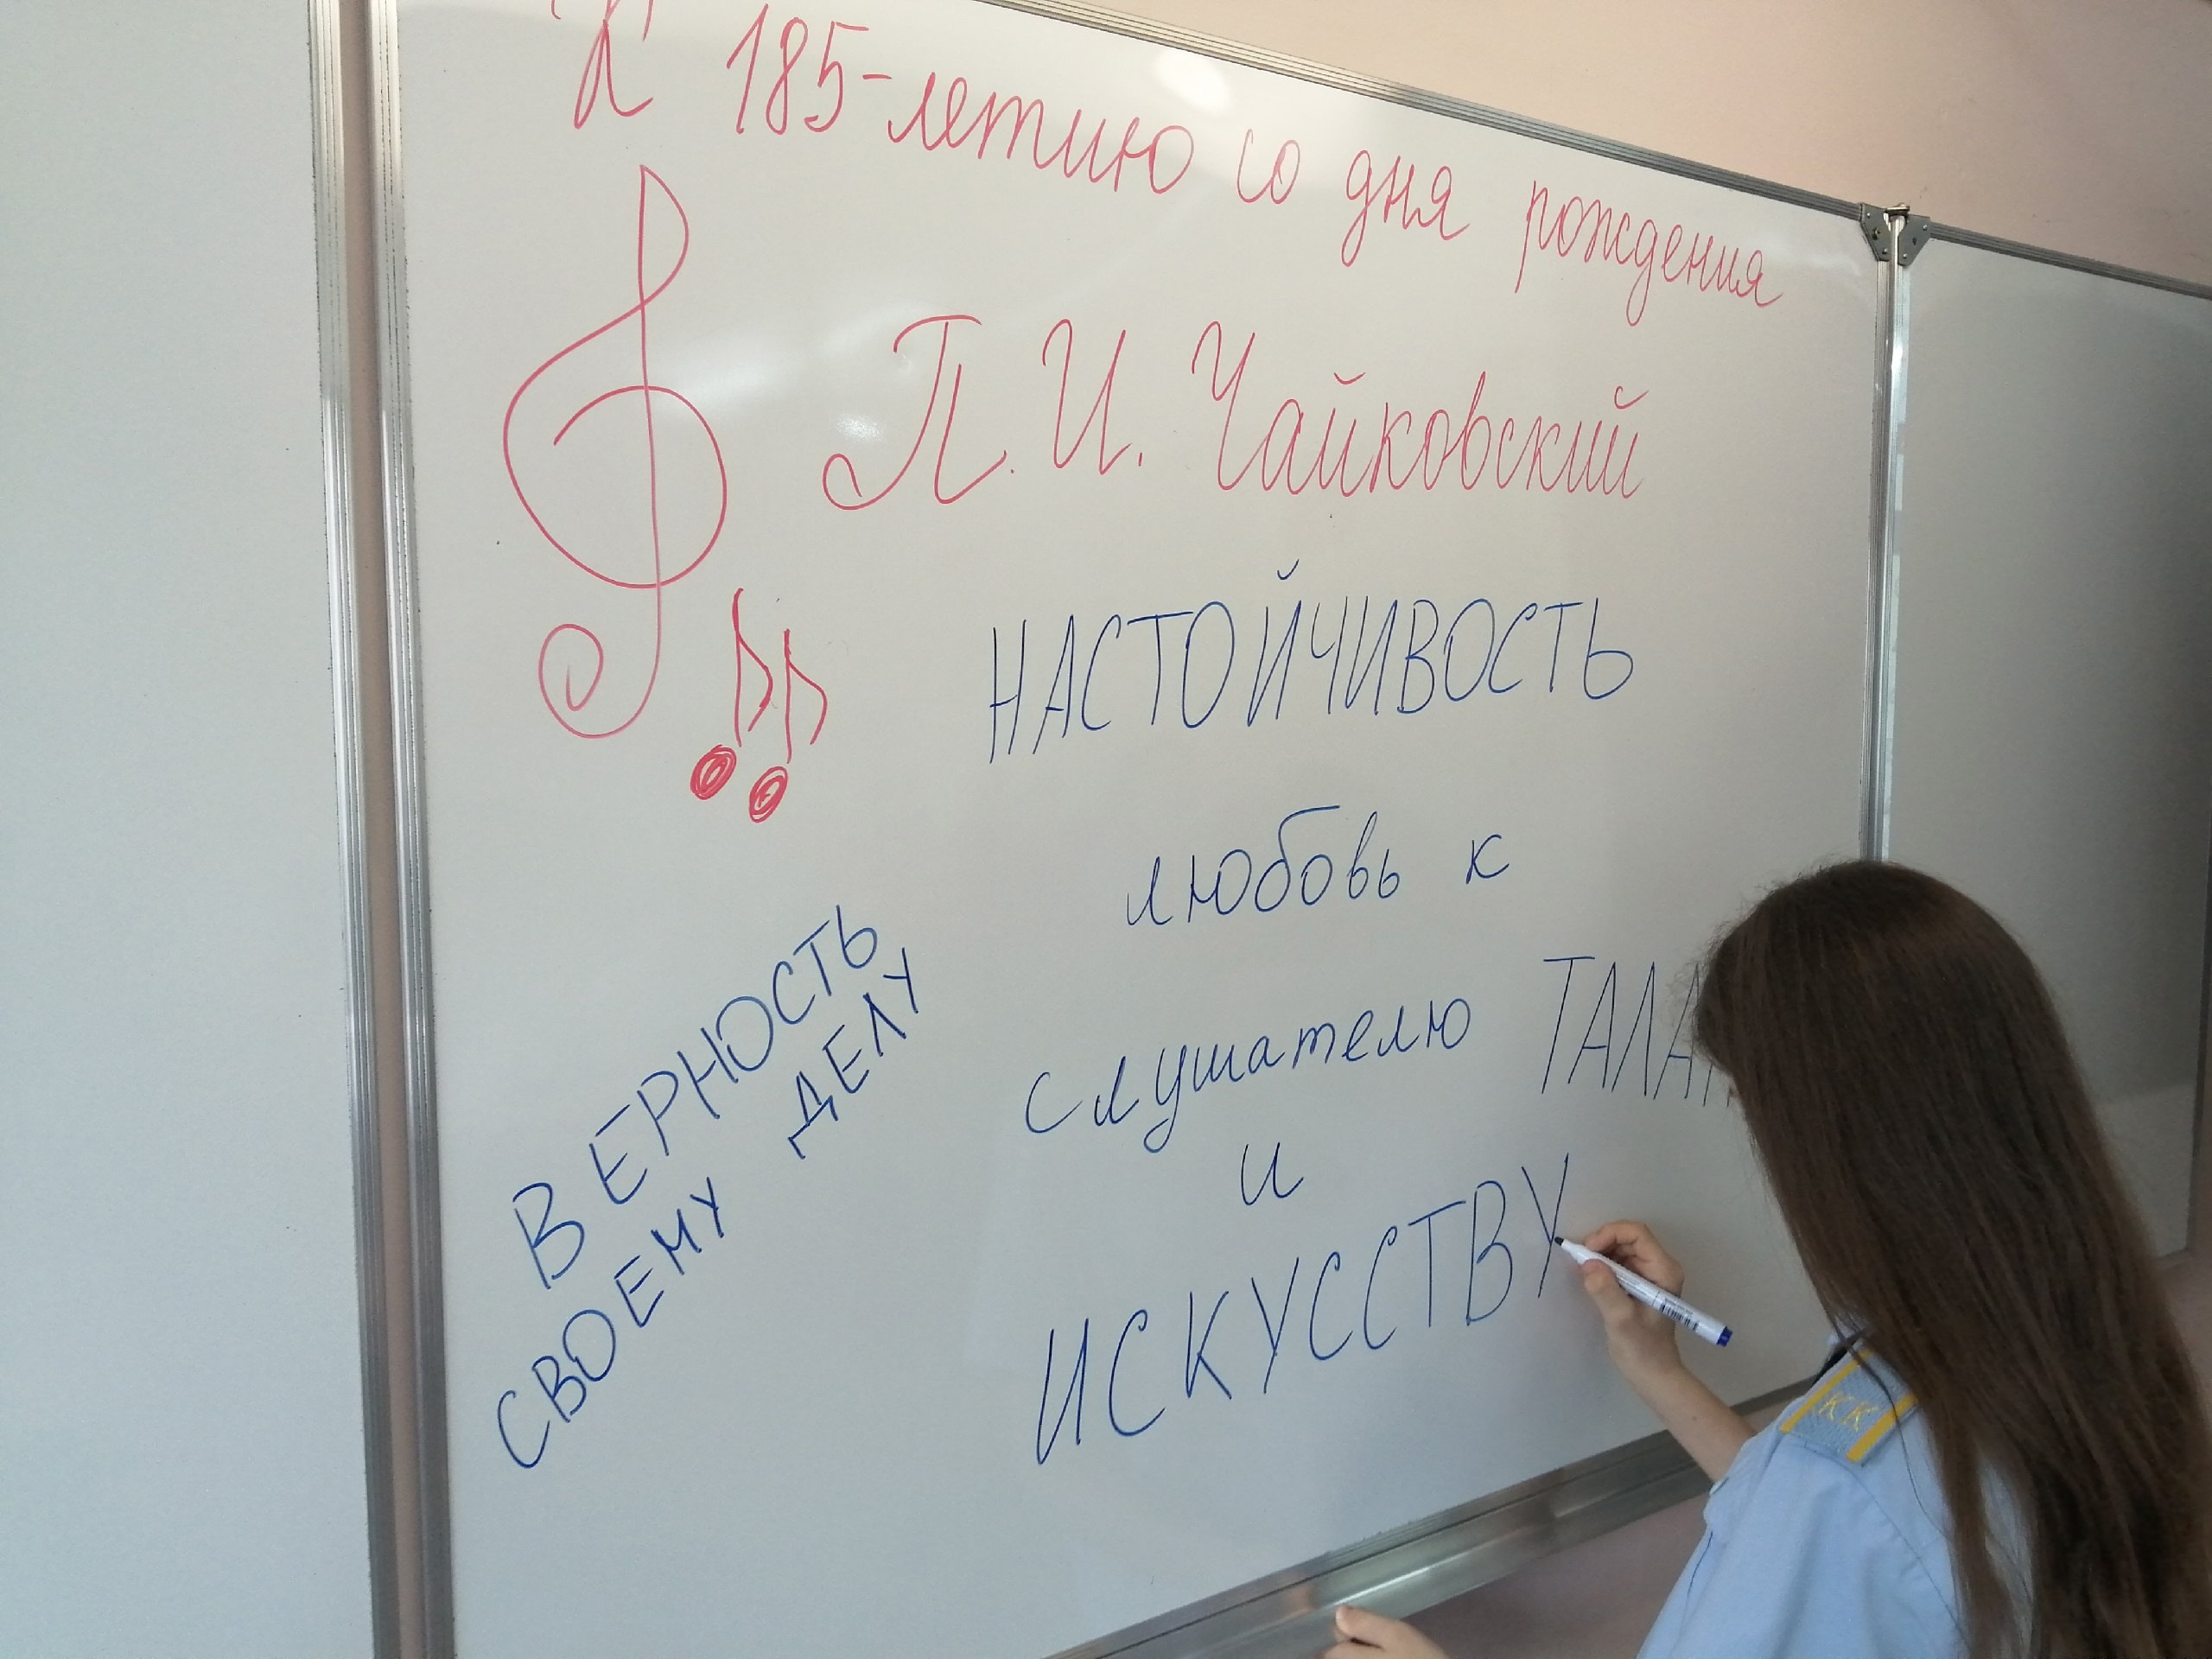 К 185-летию со дня рождения
П. И. Чайковский
НАСТОЙЧИВОСТЬ
любовь к
слушателю
и
ИСКУССТВУ
ВЕРНОСТЬ
СВОЕМУ ДЕЛУ
КК